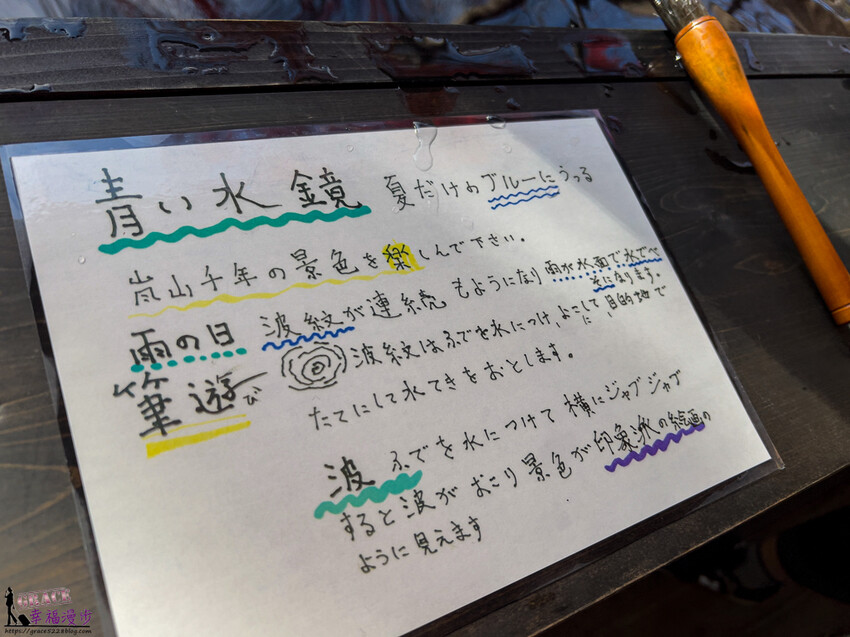 青い水鏡 夏だけのブルーにうつる
嵐山千年の景色を楽しんで下さい。
雨の日 波紋が連続もようになり雨が水面で水でべ
そになります。
筆遊び 波紋はふでを水につけ、よこにして、目的地で
たてにして水てきをおとします。
波 ふでを水につけて横にジャブジャブ
すると波がおこり景色が印象派の絵画の
ように見えます
GRACE
幸福漫步
https://grace5228blog.com